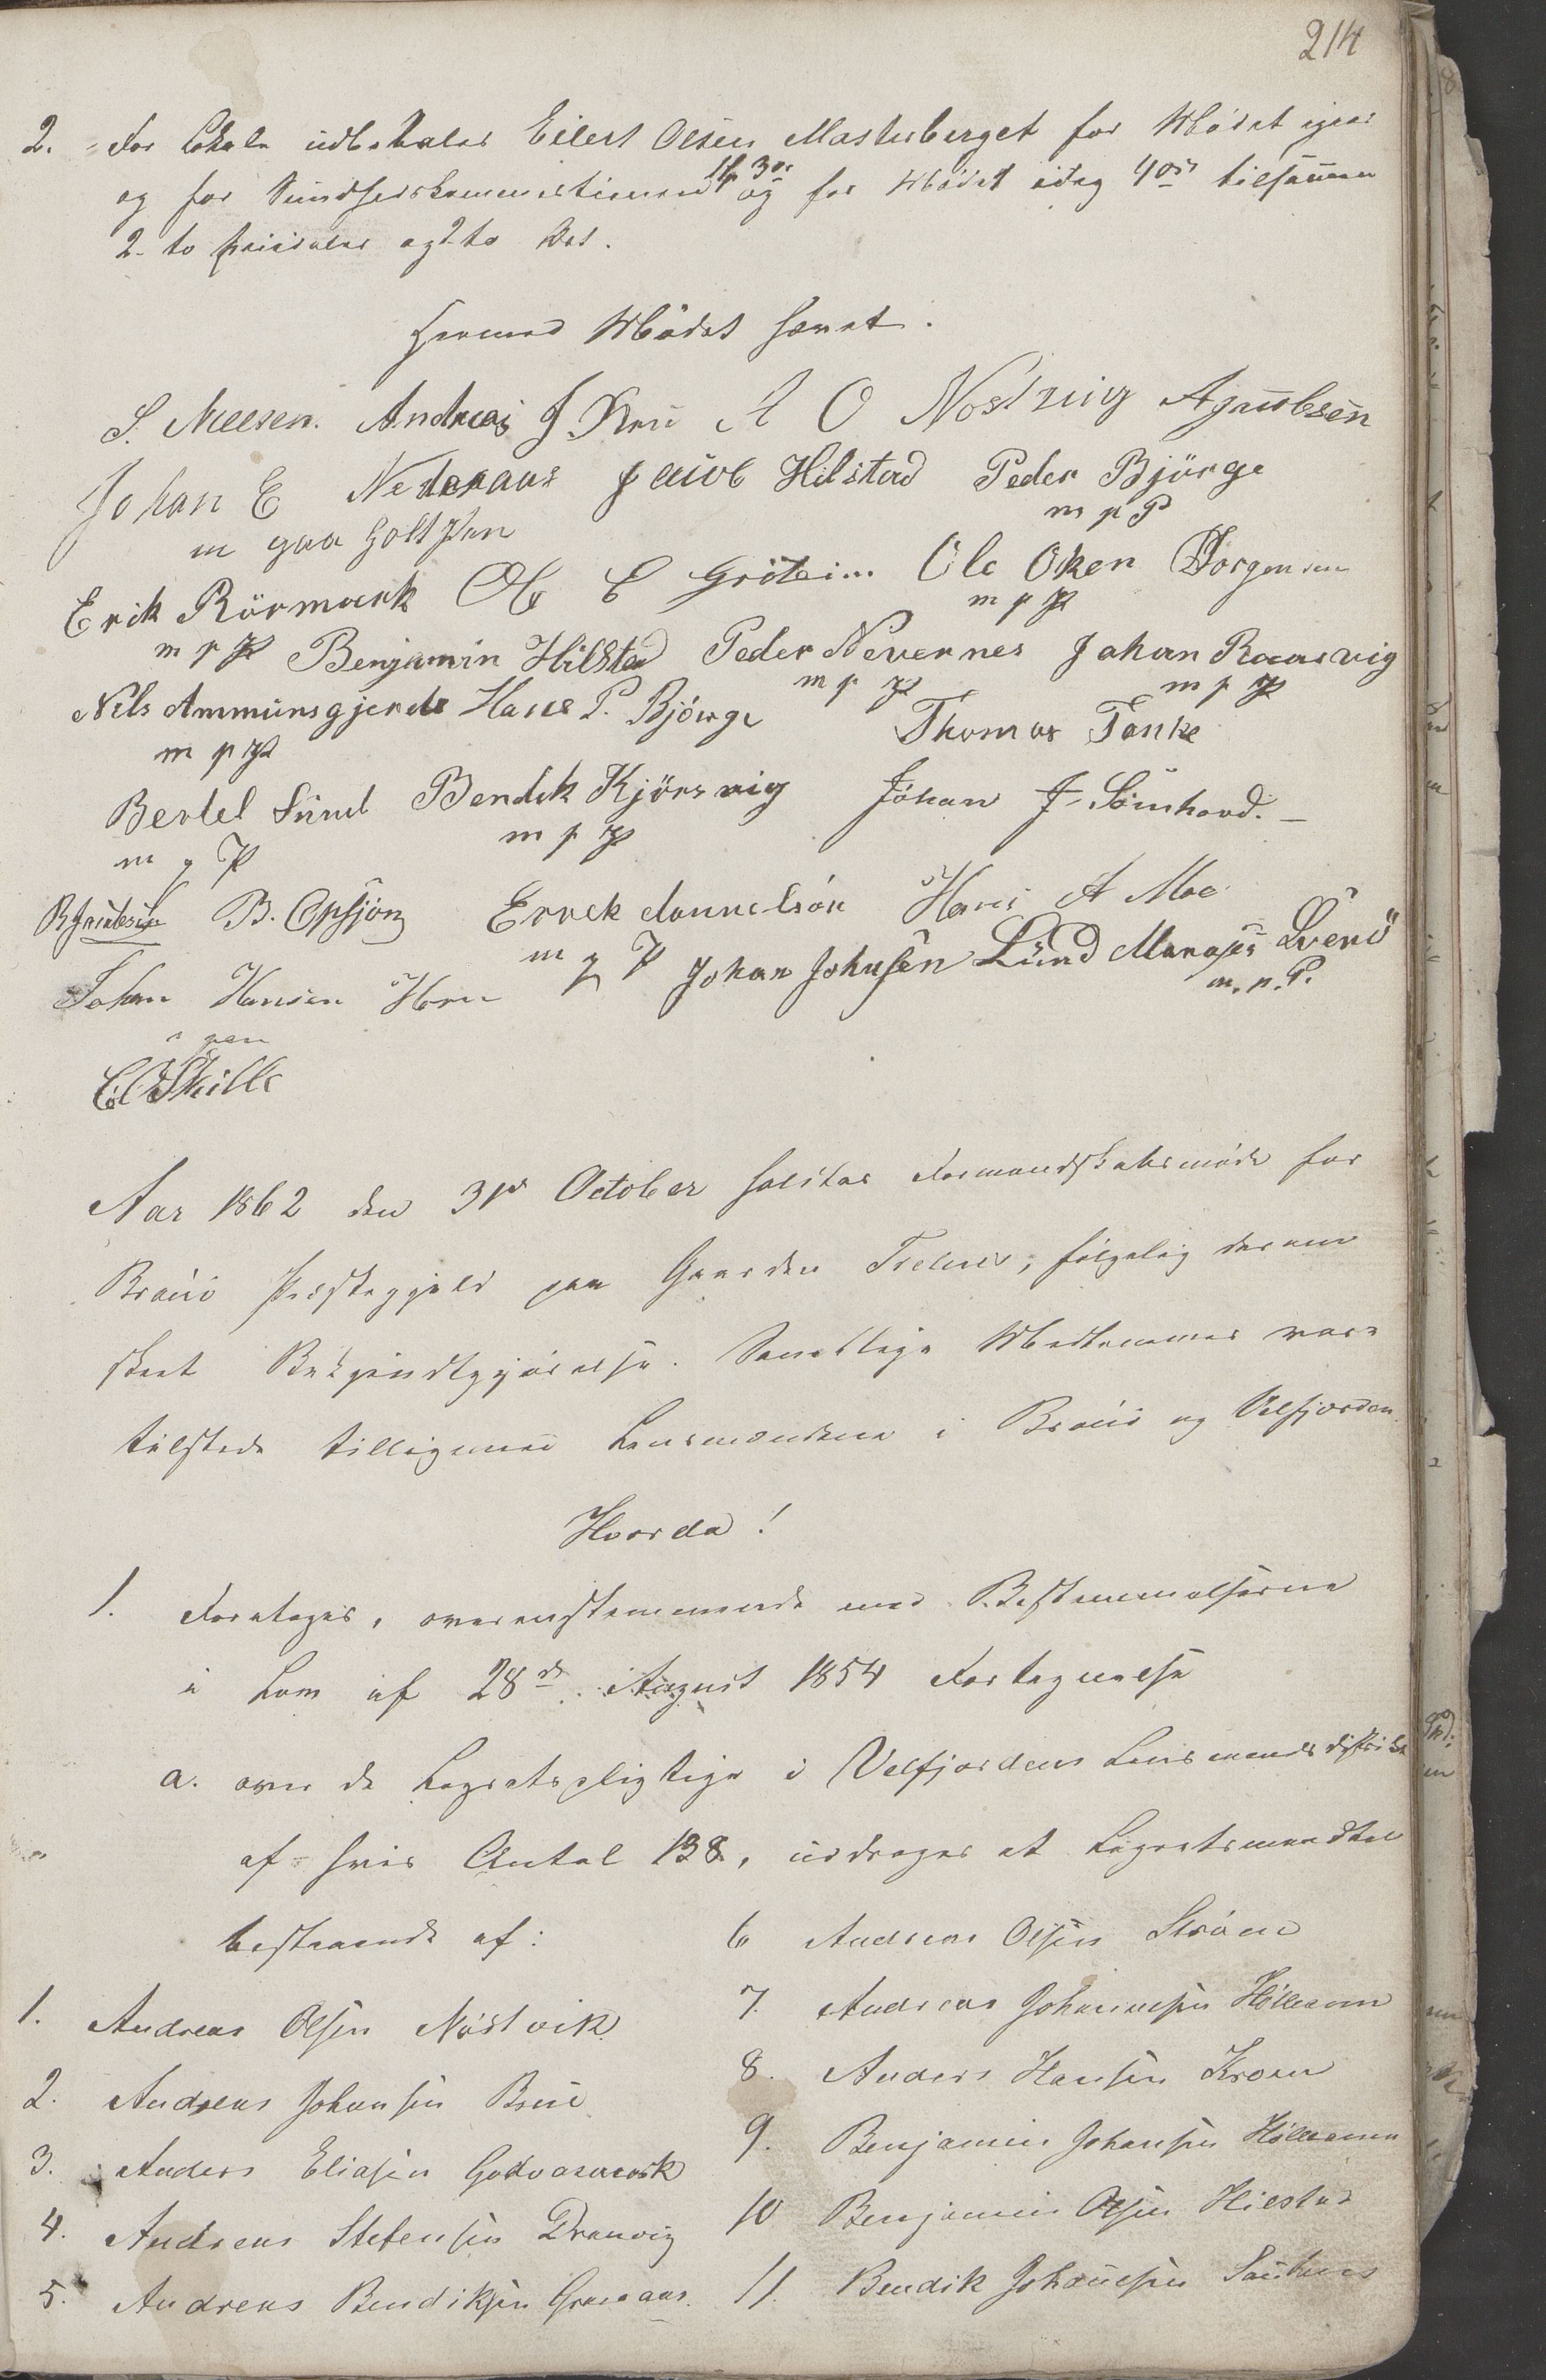 214
2. For Lokale udbetales Eilert Olsen Mastuberget for Mødet igaar
og for Sundhedskommissionen og for Mødet idag 4 ort tilsammen
2 - to Speciedaler og 2 to Ort.
Hermed Mødet hævet.
S. Nielsen. Andreas J. Bru A O Nøstvig AJacobsen
Johan E Nederaas Jacob Hilstad Peder Bjørge
m paa holt Pen m p P
Erik Rörmark Ole E Gröteim Ole Olsen Torgensen
m p P m p P
Benjamin Hilstad Peder Nevernes Johan Ramsvig
Nils Ammunsgjerde Hans P. Bjørge m p P m p P
m p P Thomas Tønke
Bertel Lund Bendik Kjörsvig Johan J. Sömhovd.
m p P m p P
B. Opsjøn Errek Dannelsön Hans A Moe
Johan Hansen Horn m p P Johan Johnsen Lund Manases Sverö
i pen m. p. P.
E. Skille
Aar 1862 den 31te October holdtes Formandskabsmøde for
Brønø Præstegjeld paa Gaarden Tilrem, følgelig derom
skeet Bekjendtgjørelse. Samtlige Medlemmer vare
tilstede tilligemed Lensmændene i Brønø og Velfjorden.
Hvorda!
1. Foretoges, overensstemmende med Bestemmelserne
i Lov af 28de August 1854 Fortegnelse
a. over de Lagretspligtige i Velfjordens Lensmandsdistrikt
af hvis Antal 138, uddroges et Lagretsmandtal
bestaaende af:
1. Andreas Olsen Nøstvik
2. Andreas Johansen Brue
3. Anders Eliasen Godvasmark
4. Andreas Stefensen Dranvig
5. Andreas Bendiksen Graneaas.
6 Andreas Olsen Strøm
7. Andreas Johannesen Høllevan
8. Anders Hansen Kroen
9. Benjamin Johansen Høllevann
10 Benjamin Olsen Hilstad
11. Bendik Johannesen Sausnes